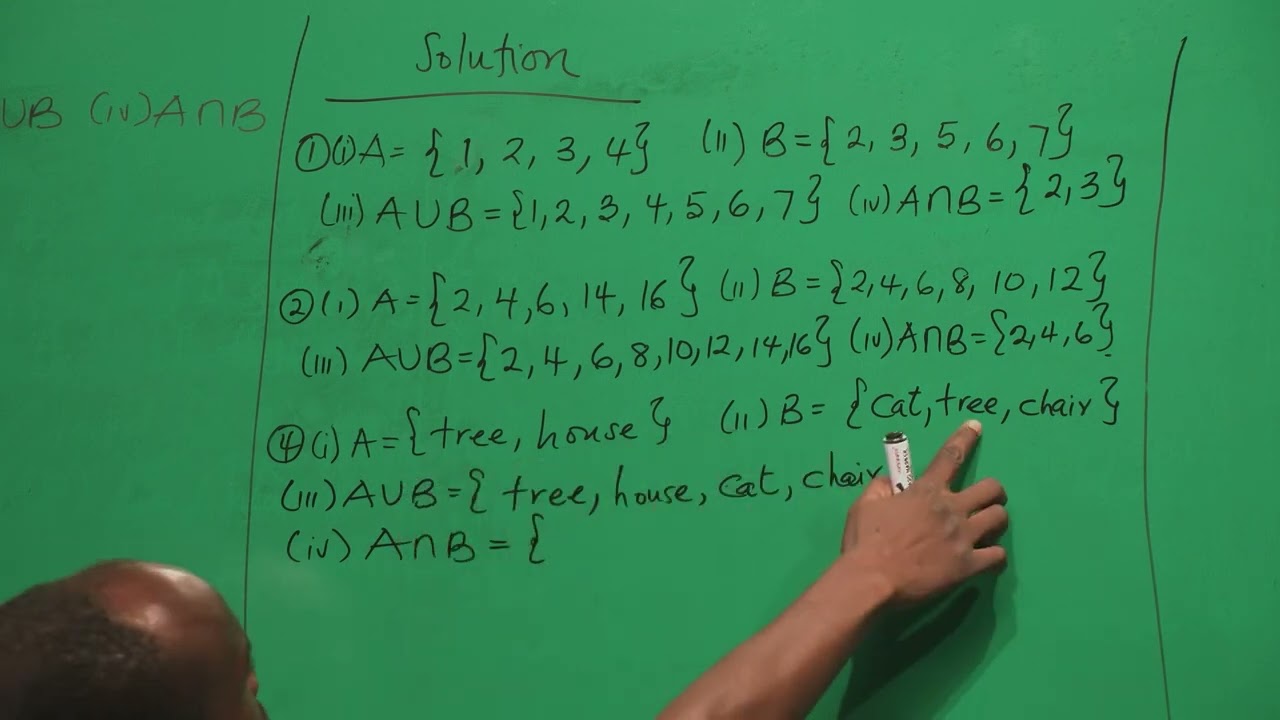 UB (iv) A∩B
Solution
①(i) A= {1, 2, 3, 4} (ii) B={2, 3, 5, 6, 7}
(iii) A∪B={1,2, 3, 4, 5, 6, 7} (iv) A∩B={2,3}
②(i) A={2, 4,6, 14, 16} (ii) B={2,4,6,8, 10,12}
(iii) A∪B={2, 4, 6, 8,10,12,14,16} (iv) A∩B={2,4,6}
④(i) A={tree, house} (ii) B= {cat, tree, chair}
(iii) A∪B={ tree, house, cat, chair
(iv) A∩B = {